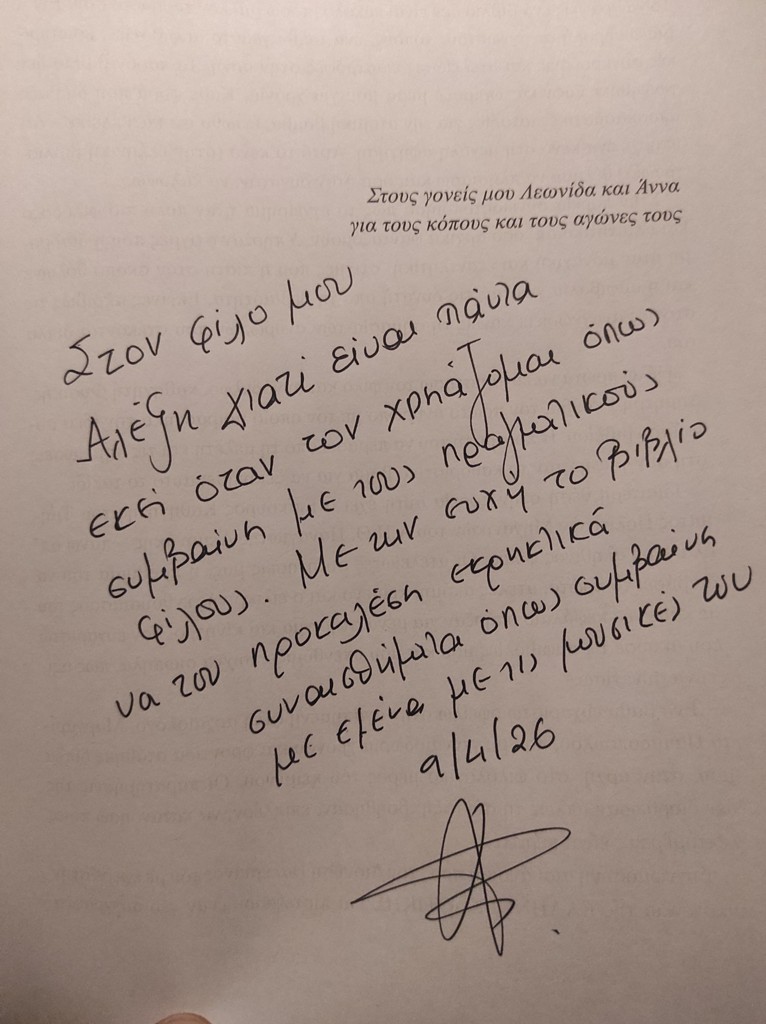 Στους γονείς μου Λεωνίδα και Άννα
για τους κόπους και τους αγώνες τους
Στον φίλο μου
Αλέξη γιατί είναι πάντα
εκεί όταν τον χρηάζομαι όπως
συμβαίνη με τους πραγματικούς
φίλους. Με την ευχή το βιβλίο
να του προκαλέση εκρηκτικά
συναισθήματα όπως συμβαίνη
με εμένα με τις μουσικές του
9/4/26